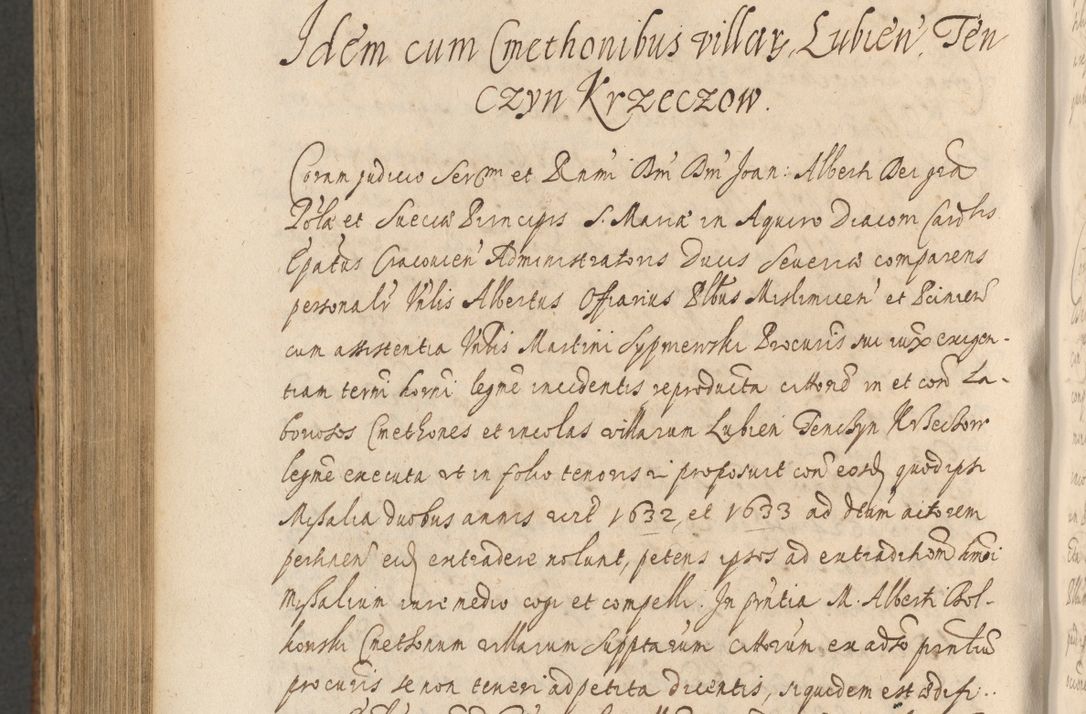 Idem cum Cmethonibus villar, Lubień, Ten
czyn Krzeczow.
Coram judicio Sermi et Rnmi Dni Dni Joan: Alberti Dei gra
Polae et Sueciae Principis S. Mariae in Aquiro Diaconi Cardlis
Epatus Cracovien Administratoris Ducis Severiae comparens
personalr Vnlis Albertus Offiarius Plbus Mislimicen et Pcimien
cum assistentia Vnlis Martini Sypniewski Procuris sui iuxo exigen-
tiam termi horni legme incidentis reproducta cittone in et con La-
boriosos Cmethones et incolas villarum Lubien Tenczyn Krzeczow
legme executa ut in folio tenoris proposuit con eosd quod ipsi
Missalia duobus annis 1632 et 1633 ad dtum actorem
pertinen eid extradere nolunt, petens ipsos ad extraditionem hmoi
Missalium iure medio cogi et compelli. In pntia M. Alberti Bol-
konski Cmethonum villarum supptarum cittorum ex adso pnntium
procuris se non teneri ad petita dicentis, siquidem est